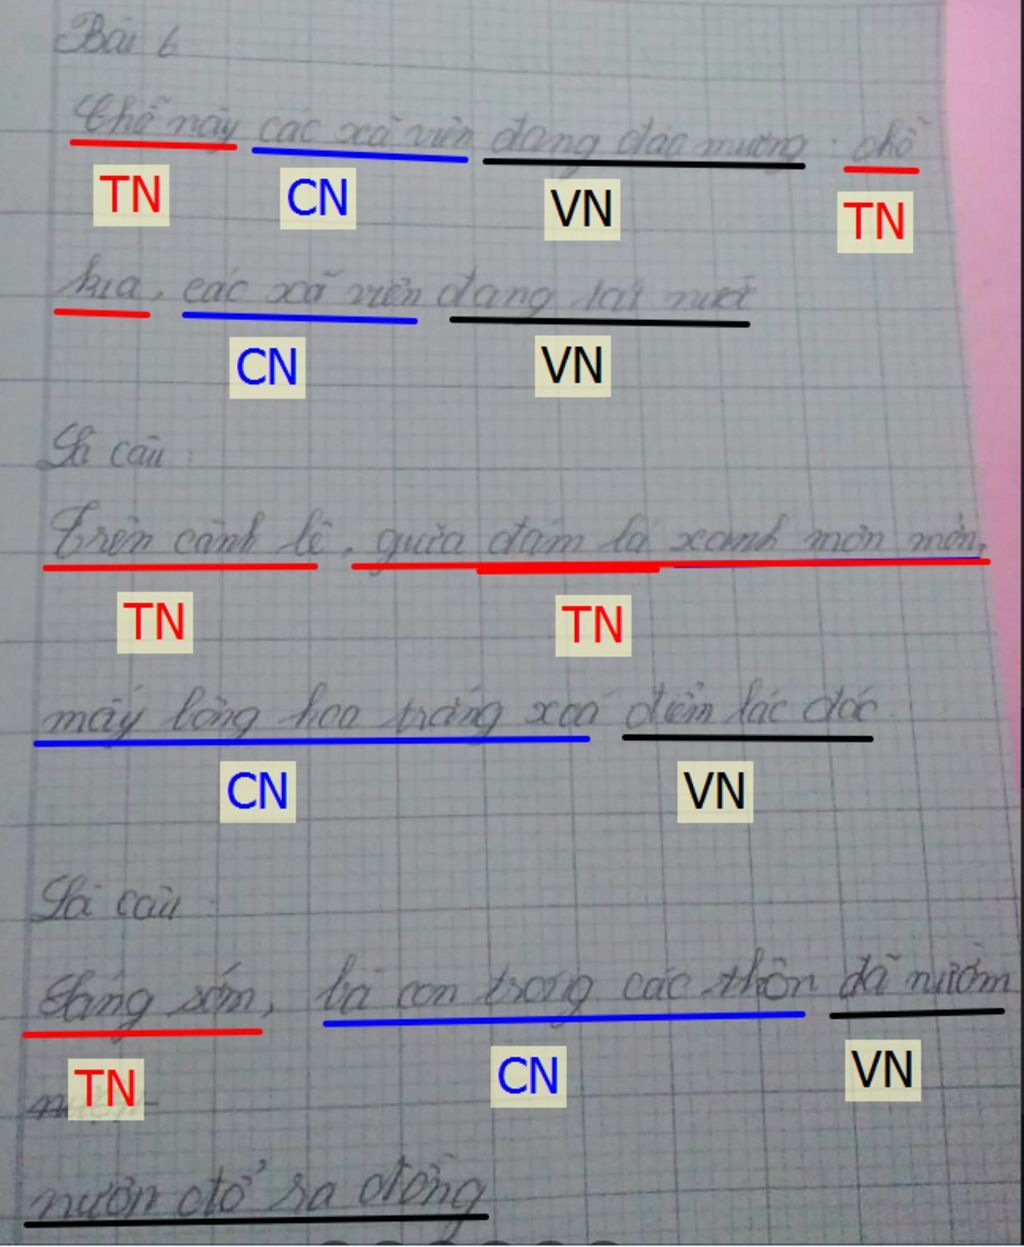 Bài 6
Chỗ này các xã viên đang đắc mương. chỗ
TN CN VN TN
kia, các xã viên đang tát nước
CN VN
Là câu:
Trên cành lê, giữa đám lá xanh mơn mởn,
TN TN
mấy bông hoa trắng xoá điểm lác đác
CN VN
Là câu:
Sáng sớm, bà con trong các thôn đã nườm
TN CN VN
nượp đổ ra đồng